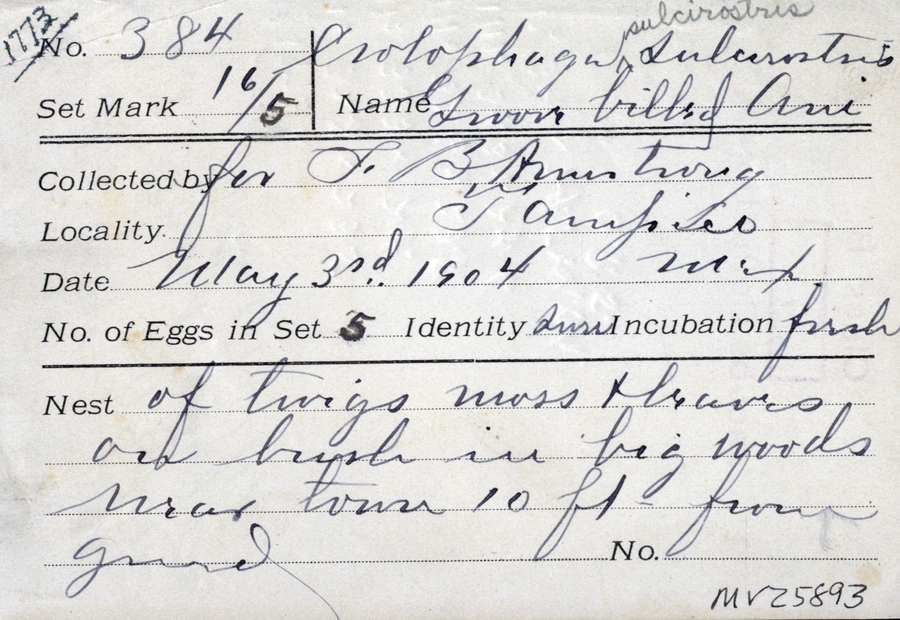 1773
sulcirostris
No. 384 Crotophaga, Sulcirostris
Set Mark 16/5 Name Groove billed Ani
Collected by for F. B. Armstrong
Locality. Tampico
Date May 3rd. 1904 Mex
No. of Eggs in Set 5 Identity sure Incubation fresh
Nest of twigs moss & leaves
on bush in big woods
near town 10 ft - from
grund
No.
MVZ5893